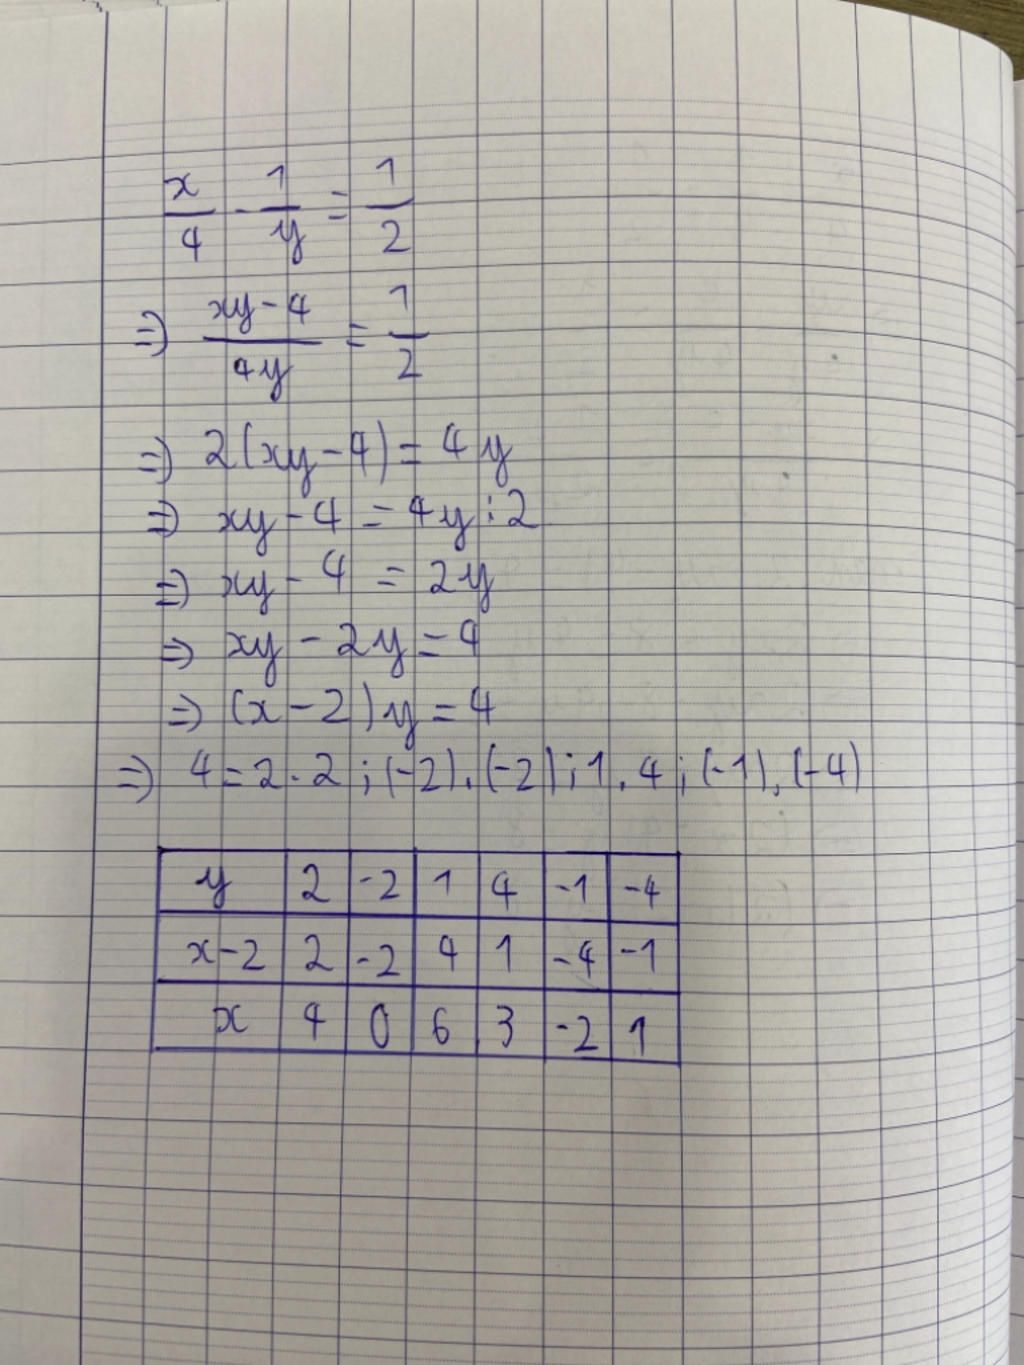 x/4 - 1/y = 1/2
=> (xy-4)/4y = 1/2
=> 2(xy-4) = 4y
=> xy-4 = 4y:2
=> xy-4 = 2y
=> xy-2y=4
=> (x-2)y=4
=> 4=2.2; (-2).(-2); 1.4; (-1).(-4)
y 2 -2 1 4 -1 -4
x-2 2 -2 4 1 -4 -1
x 4 0 6 3 -2 1